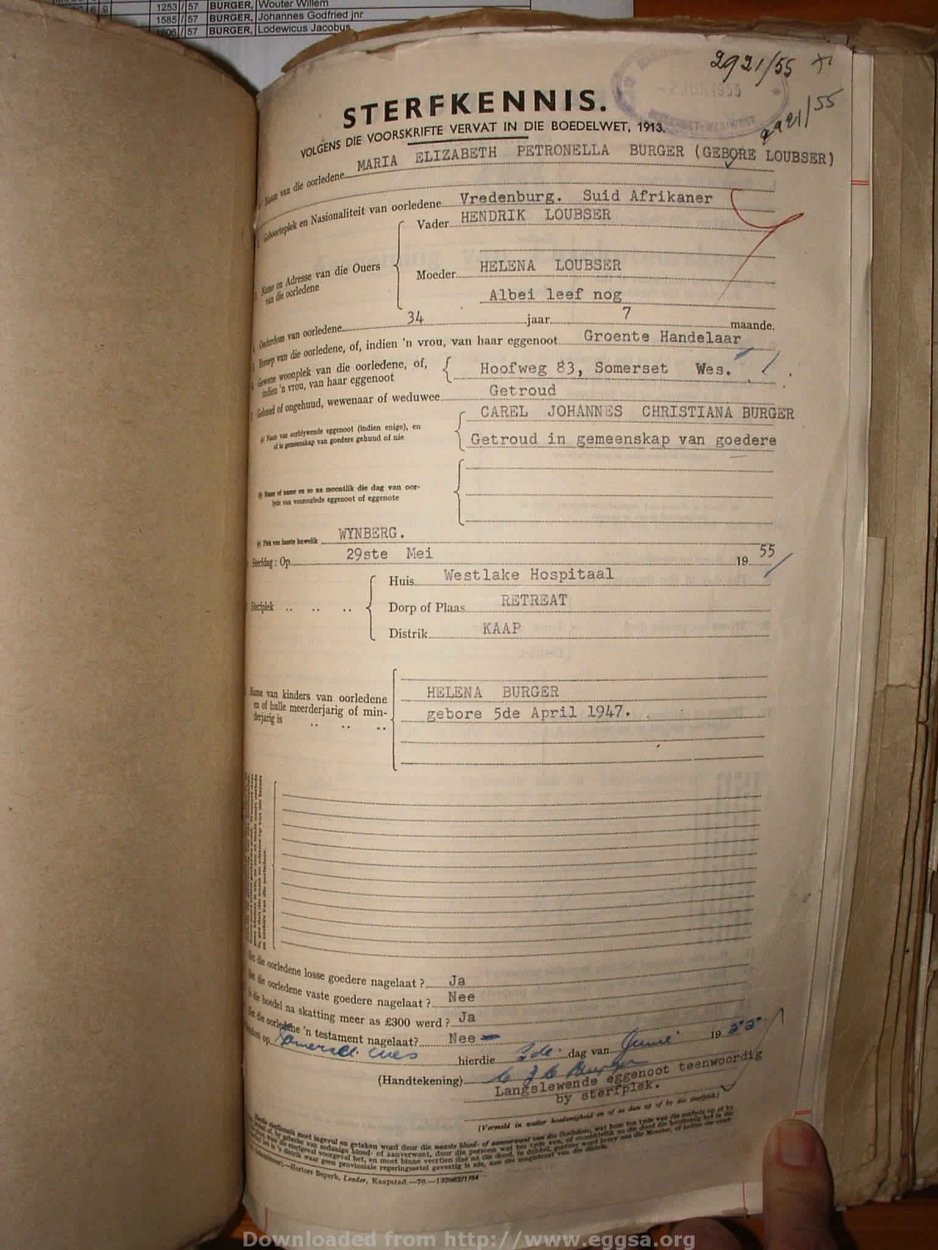 1253/57 BURGER, Wouter Willem
1585/57 BURGER, Johannes Godfried jnr
1606/57 BURGER, Lodewicus Jacobus
2921/55
2921/55
STERFKENNIS.
VOLGENS DIE VOORSKRIFTE VERVAT IN DIE BOEDELWET, 1913.
Naam van die oorledene MARIA ELIZABETH PETRONELLA BURGER (GEBORE LOUBSER)
Geboorteplek en Nasionaliteit van oorledene Vredenburg. Suid Afrikaner
Vader HENDRIK LOUBSER
Name en Adresse van die Ouers van die oorledene
Moeder HELENA LOUBSER
Albei leef nog
Ouderdom van oorledene 34 jaar 7 maande.
Beroep van die oorledene, of, indien 'n vrou, van haar eggenoot Groente Handelaar
Gewone woonplek van die oorledene, of, indien 'n vrou, van haar eggenoot Hoofweg 83, Somerset Wes.
Gehud of ongehuud, wewenaar of weduwee Getroud
a) Naam van oorblywende eggenoot (indien enige), en of in gemeenskap van goedere gehuud of nie
CAREL JOHANNES CHRISTIANA BURGER
Getroud in gemeenskap van goedere
b) Naam of name en so na moontlik die dag van oorlyde van vooroorlede eggenoot of eggenote
c) Plek van laaste huwelik WYNBERG.
Sterfdag: Op 29ste Mei 19 55
Sterfplek
Huis Westlake Hospitaal
Dorp of Plaas RETREAT
Distrik KAAP
Name van kinders van oorledene en of hulle meerderjarig of minderjarig is
HELENA BURGER
gebore 5de April 1947.
Het die oorledene losse goedere nagelaat? Ja
Het die oorledene vaste goedere nagelaat? Nee
Is die boedel na skatting meer as £300 werd? Ja
Het die oorledene 'n testament nagelaat? Nee
op Somerset Wes hierdie 3de dag van Junie 19 55
(Handtekening) C J C Burger
Langslewende eggenoot teenwoordig
by sterfplek.
(Vermeld in watter hoedanigheid en of u dan of by die sterfplek)
Hortors Beperk, Leader, Kaapstad
Downloaded from http://www.eggsa.org